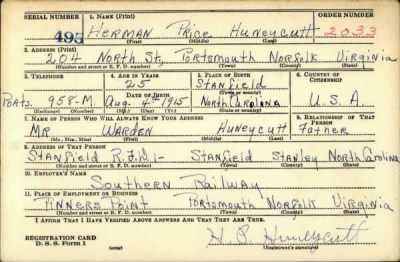 SERIAL NUMBER 1. NAME (Print) ORDER NUMBER
495 HERMAN Price HUNEYCUTT 2033
(First) (Middle) (Last)
2. ADDRESS (Print)
204 NORTH St, PORTSMOUTH NORFOLK VIRGINIA
(Number and street or R. F. D. number) (Town) (County) (State)
3. TELEPHONE 4. AGE IN YEARS 5. PLACE OF BIRTH 6. COUNTRY OF CITIZENSHIP
25 STANFIELD
DATE OF BIRTH (Town or county)
Ports. 958-M. Aug. 4th 1915 North Carolina U.S.A.
(Exchange) (Number) (Mo.) (Day) (Yr.) (State or country)
7. NAME OF PERSON WHO WILL ALWAYS KNOW YOUR ADDRESS 8. RELATIONSHIP OF THAT PERSON
MR WARDEN HUNEYCUTT Father
(Mr., Mrs., Miss) (First) (Middle) (Last)
9. ADDRESS OF THAT PERSON
STANFIELD R.F.D.1- STANFIELD STANLEY NORTH Carolina
(Number and street or R. F. D. number) (Town) (County) (State)
10. EMPLOYER'S NAME
Southern Railway
11. PLACE OF EMPLOYMENT OR BUSINESS
PINNERS POINT PORTSMOUTH NORFOLK VIRGINIA
(Number and street or R. F. D. number) (Town) (County) (State)
I AFFIRM THAT I HAVE VERIFIED ABOVE ANSWERS AND THAT THEY ARE TRUE.
REGISTRATION CARD
D. S. S. Form 1 H. P. Huneycutt
(Registrant's signature)